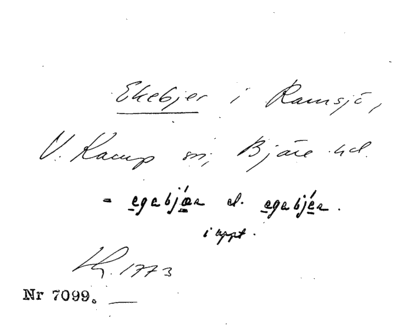 Ekebjer i Ramsjö,
V. Karup sn, Bjäre hd.
- egabjæ̀a el. egabjèa.
i uppt.
Lg. 1773
Nr 7099. —